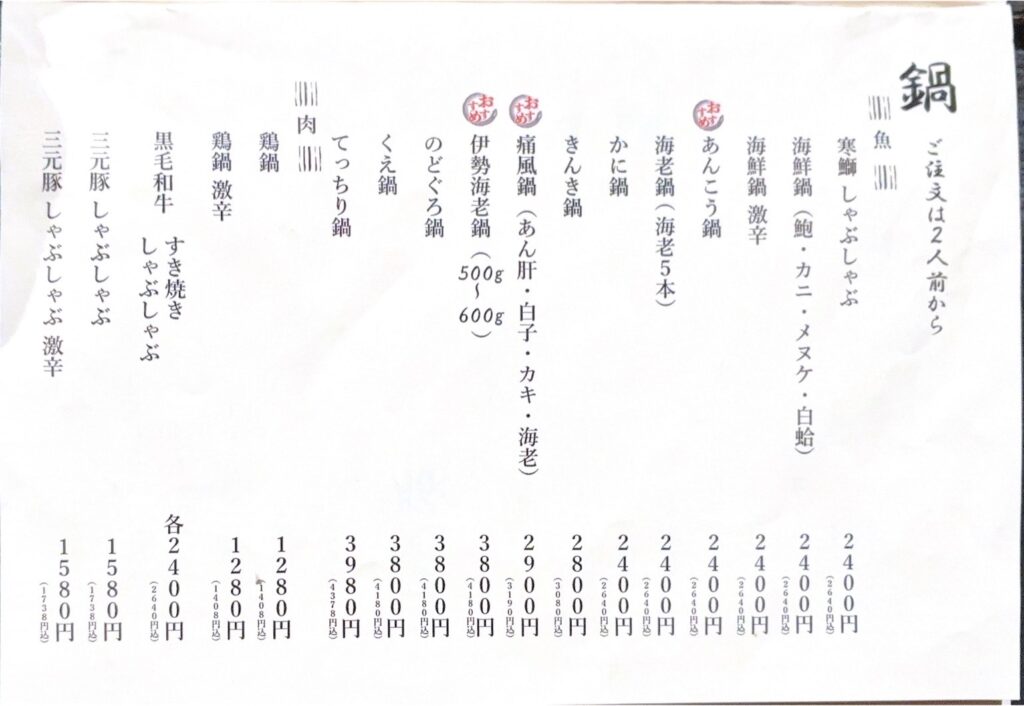 鍋 ご注文は2人前から
魚
寒鰤 しゃぶしゃぶ 2400円(2640円込)
海鮮鍋(鮑・カニ・メヌケ・白蛤) 2400円(2640円込)
海鮮鍋 激辛 2400円(2640円込)
おすすめ あんこう鍋 2400円(2640円込)
海老鍋(海老5本) 2400円(2640円込)
かに鍋 2400円(2640円込)
きんき鍋 2800円(3080円込)
おすすめ 痛風鍋(あん肝・白子・カキ・海老) 2900円(3190円込)
おすすめ 伊勢海老鍋(500g〜600g) 3800円(4180円込)
のどぐろ鍋 3800円(4180円込)
くえ鍋 3800円(4180円込)
てっちり鍋 3980円(4378円込)
肉
鶏鍋 1280円(1408円込)
鶏鍋 激辛 1280円(1408円込)
黒毛和牛 すき焼き しゃぶしゃぶ 各2400円(2640円込)
三元豚 しゃぶしゃぶ 1580円(1738円込)
三元豚 しゃぶしゃぶ 激辛 1580円(1738円込)